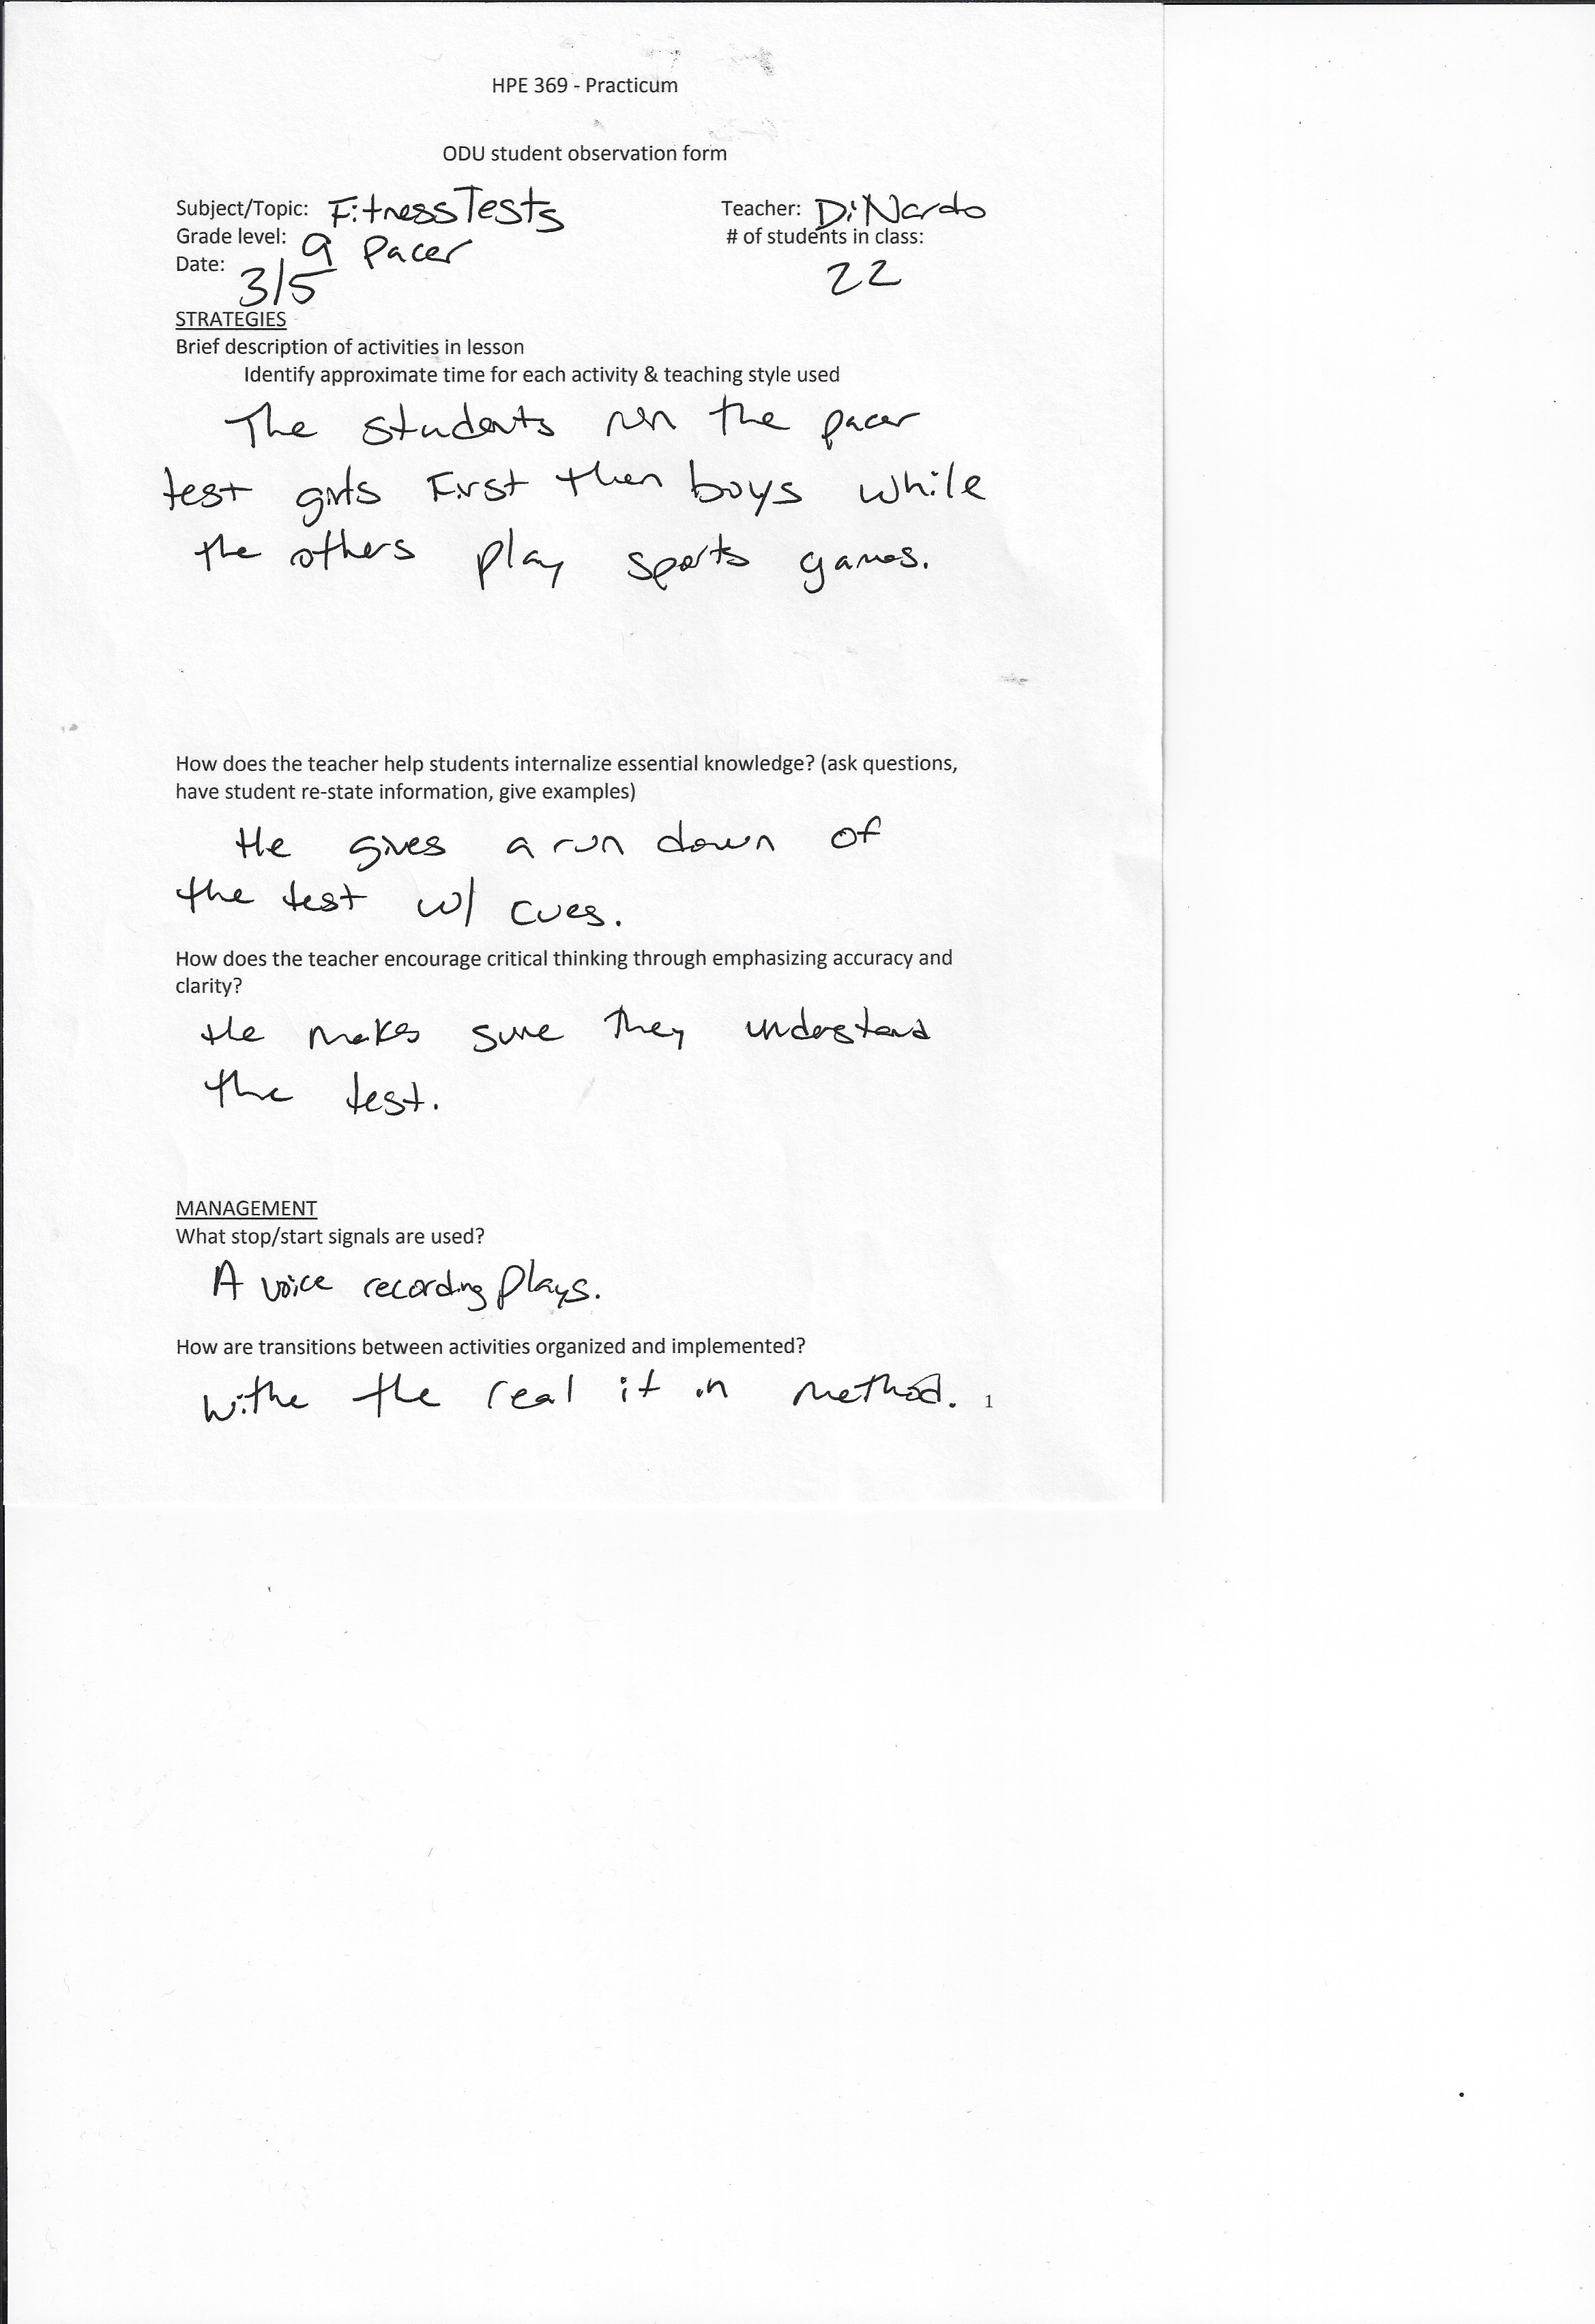 HPE 369 - Practicum
ODU student observation form
Subject/Topic: Fitness Tests
Teacher: DiNardo
Grade level: 9 Pacer
# of students in class:
Date: 3/5
22
STRATEGIES
Brief description of activities in lesson
Identify approximate time for each activity & teaching style used
The students run the pacer
test girls First then boys while
the others play sports games.
How does the teacher help students internalize essential knowledge? (ask questions,
have student re-state information, give examples)
He gives a run down of
the test w/ cues.
How does the teacher encourage critical thinking through emphasizing accuracy and
clarity?
He makes sure they understand
the test.
MANAGEMENT
What stop/start signals are used?
A voice recording plays.
How are transitions between activities organized and implemented?
Withe the real it in method. 1